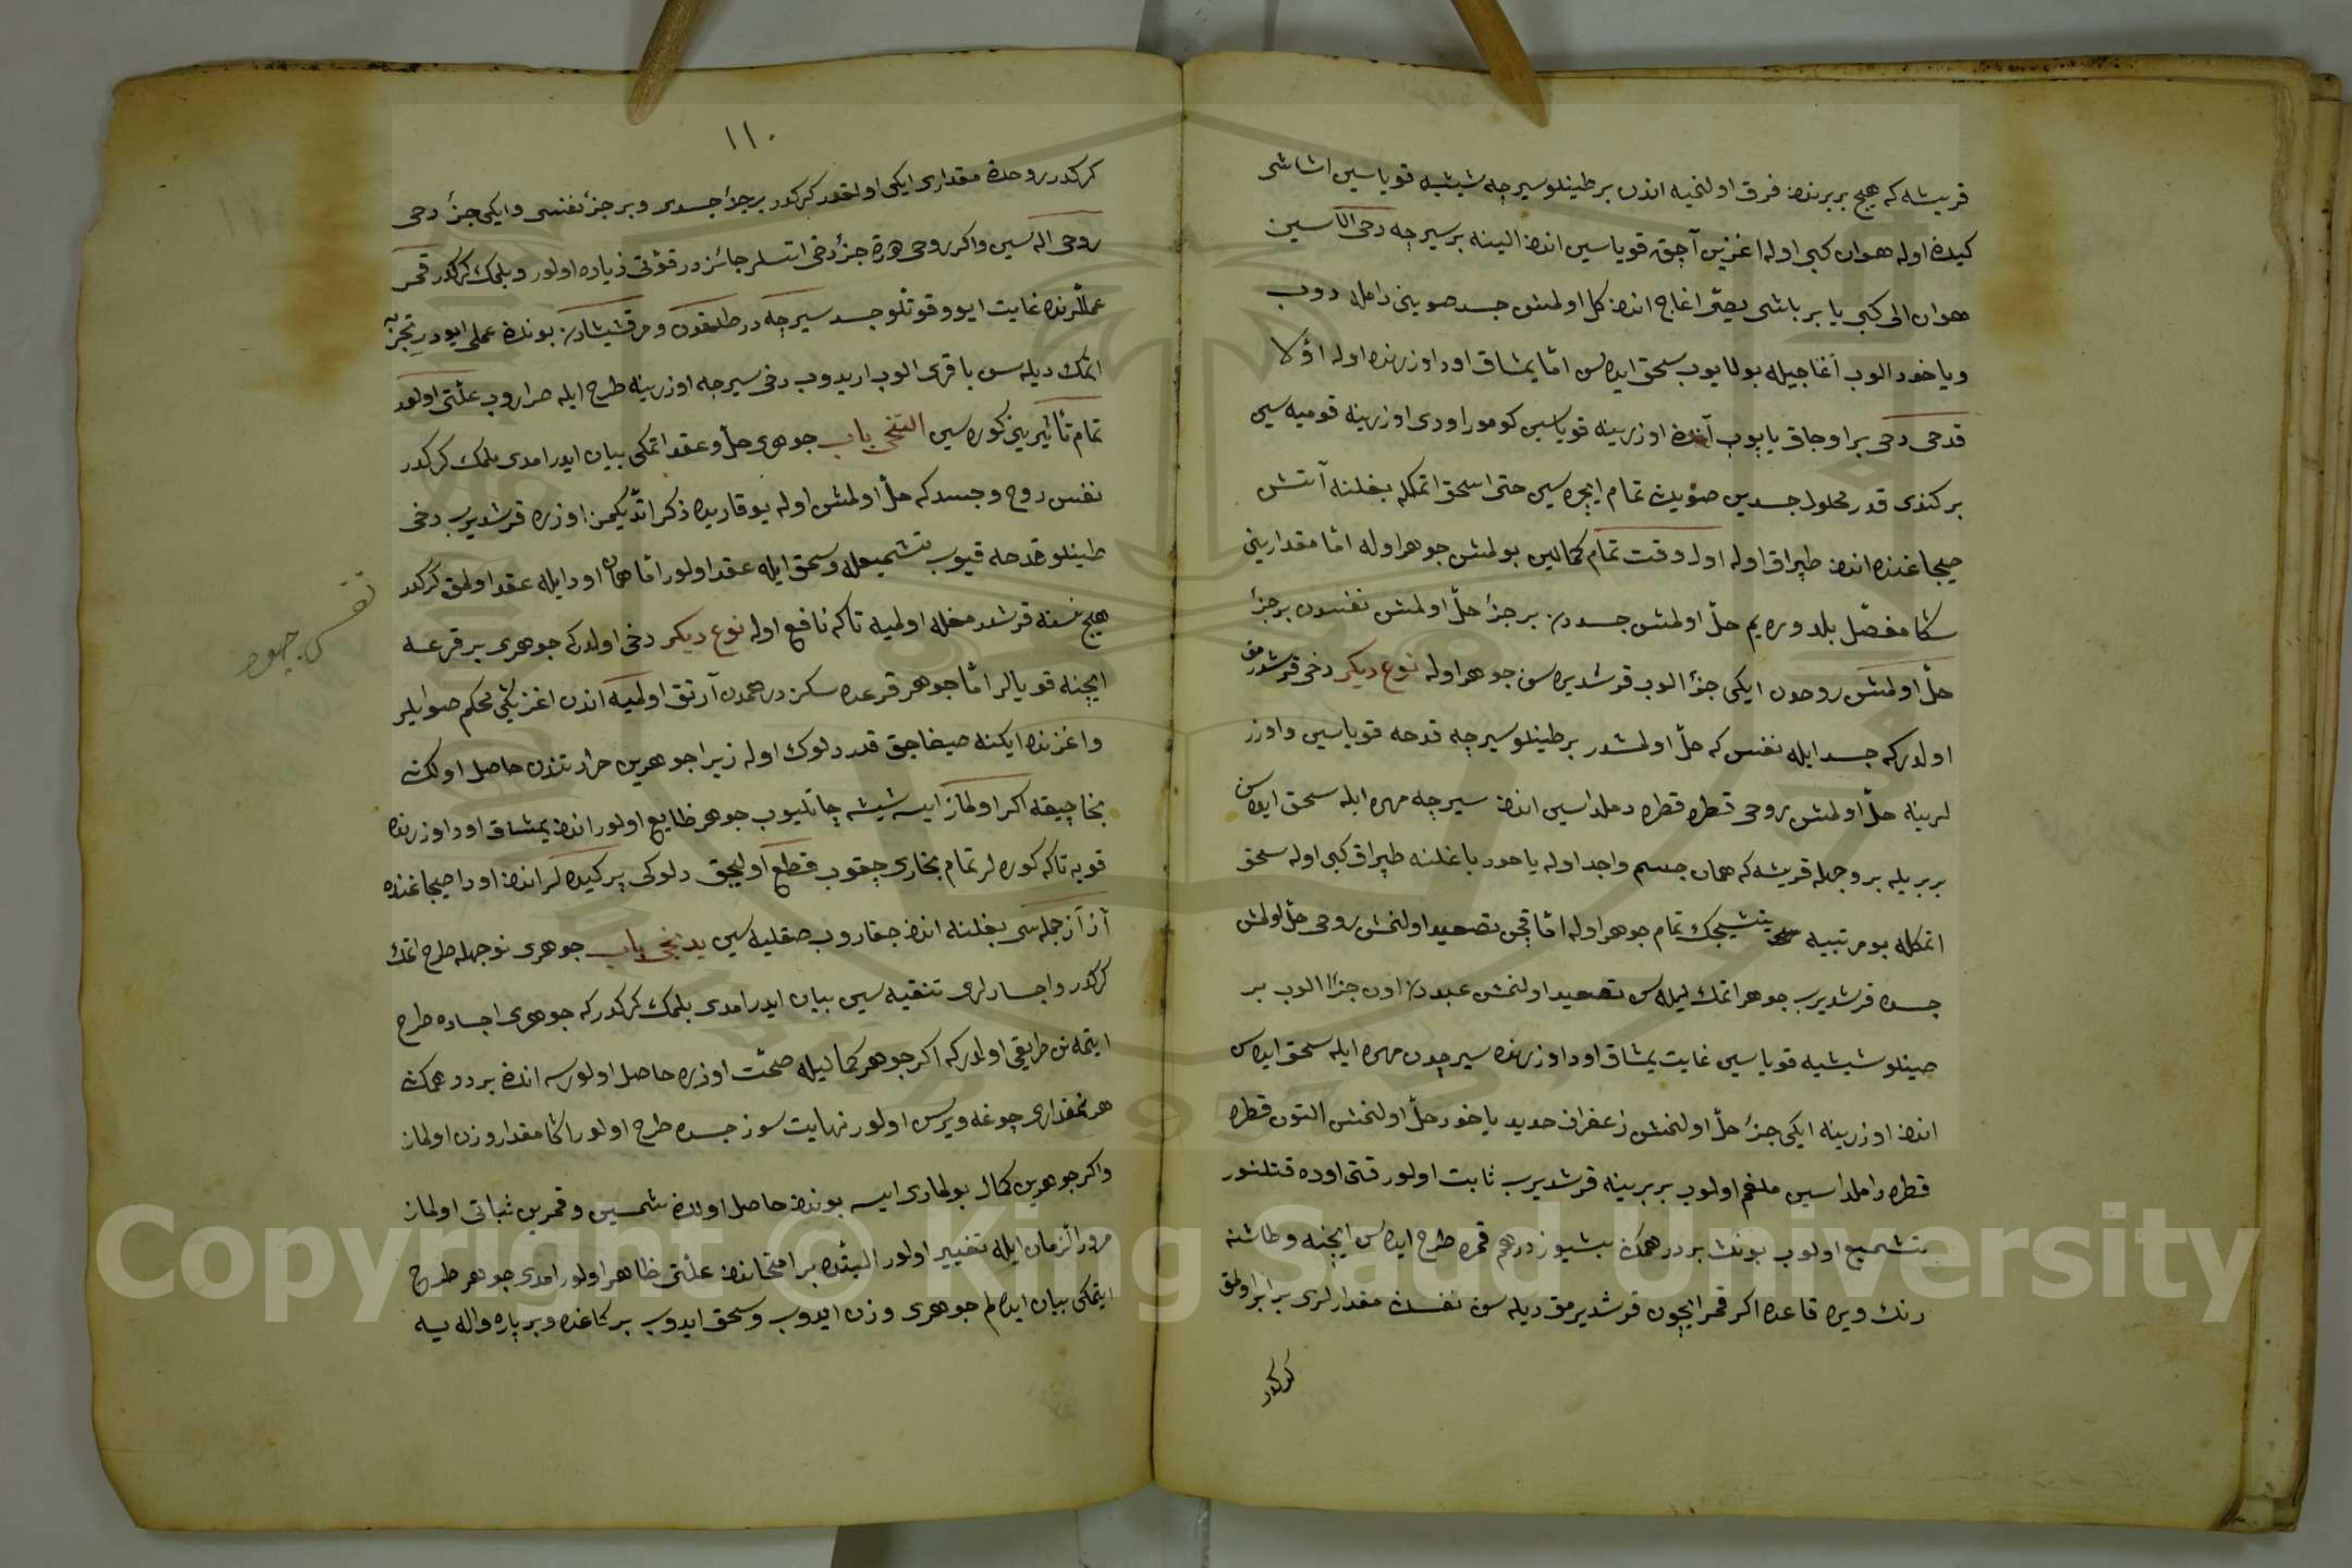 قریشه که هیچ بربرندن فرق اولنمیه اندن بر طینلو سیرچه شیشیه قویاسین اشاشی
کیدن اوله هوان کبی اوله اغزین آچق قویاسین اندن الینه بر سیرچه دخی الاسین
هوان الی کبی یا بر باشی یصّی اغاج اندن کل اولمش جسد صوینی داملا دوب
ویاخود الوب آغاجیله بولایوب سحق ایده سن امّا یمشاق اود اوزرنده اوله اوّلا
قدحی دخی بر اوجاق یاپوب آنده اوزرینه قویاسین کومور اودی اوزرینه قومیه سین
بر کندی قدر محلول جسدین صویندن تمام ایچره سین حتی اسحق اتمکله بغلنه آتش
صیجاغنده اندن طپراق اوله اول وقت تمام کمالین بولمش جوهر اوله امّا مقدارینی
شکا مفصّل بلدوره یم حلّ اولمش جسددن بر جزؤ حلّ اولمش نفسدن بر جزؤ
حلّ اولمش روحدن ایکی جزؤ الوب قرشدیره سن جوهر اوله نوع دیکر دخی قرشدرمق
اولدرکه جسد ایله نفس که حلّ اولمشدر بر طینلو سیرچه قدحه قویاسین واوزر
لرینه حلّ اولمش روحی قطره قطره دملداسین اندن سیرچه مهره ایله سحق ایده سن
بربریله بر وجهله قریشه که همان جسم واحد اوله یاخود باغلنه طپراق کبی اوله سحق
اتمکله بو مرتبیه یتشیجک تمام جوهر اوله امّا قچن تصعید اولنمش روحی حلّ اولمش
جسده قرشدیرب جوهر اتمک دیله سن تصعید اولنمش عبددن اون جزؤ الوب بر
صینلو شیشیه قویاسین غایت یمشاق اود اوزرنده سیرچه دن مهره ایله سحق ایده سن
اندن اوزرینه ایکی جزؤ حلّ اولنمش زعفران حدید یاخود حلّ اولنمش التون قطره
قطره داملداسین ملغم اولوب بربرینه قرشدیرب ثابت اولور قتی اوده قتلنور
تشمیع اولوب بونک بر درهمک بشیوز درهم قمره طرح ایده سن ایچنه وطاشنه
رنک ویره قاعده اکر قمر ایچون قرشدیرمق دیله سن نفسک مقدارلری برابر اولمق
کرکدر
١١٠
کرکدر روحک مقداری ایکی اولمقدر کرکدر بر جزؤ جسدی وبر جزؤ نفسی وایکی جزؤ دخی
روحی اله سین واکر روحی هرق جزؤ دخی اتسلر جائزدر قوّتی زیاده اولور وبلمک کرکدر قمر
عمللرنده غایت ایو وقوّتلو جسد سیرچه در طلقدن ومرقشیثادن بوندن عملی ایودر تجربه
اتمک دیله سن باقری الوب اریدوب دخی سیرچه اوزرینه طرح ایله صراروب علّتی اولور
تمام تأثیرینی کوره سین التنجی باب جوهری حلّ وعقد اتمکی بیان ایدر امدی بلمک کرکدر
نفس روح وجسد که حلّ اولمش اوله یوقاریده ذکر اتدیکمز اوزره قرشدیرب دخی
طینلو قدحه قیوب تشمیعله وسحق ایله عقد اولور امّا همان اود ایله عقد اولمق کرکدر
هیچ نسنه قرشدرمغله اولمیه تاکه نافع اوله نوع دیکر دخی اولدرکه جوهری بر قرعه
ایچنه قویالر امّا جوهر قرعده سکز درهمدن آرتق اولمیه اندن اغزینی محکم صوایلر
واغزنده ایکنه صیغاجق قدر دلوک اوله زیرا جوهرین حرارتندن حاصل اولدک
بخار چیقه اکر اولماز ایسه شیشه چاتلیوب جوهر ضایع اولور اندن یمشاق اود اوزرنده
قویه تاکه کوره لر تمام بخاری چقوب قطع اولیجق دلوکی پرکیده لر اندن اود صیجاغنده
آز آز جمله سی بغلنه اندن جقاروب صقلیه سین یدنجی باب جوهری نوجهله طرح اتمک
کرکدر واجسادلری تنقیه سین بیان ایدر امدی بلمک کرکدر که جوهری اجساده طرح
ایتمه نن طریقی اولدرکه اکر جوهر کمالیله صحّت اوزره حاصل اولورسه اندن بر درهمک
هر نمقداری چوغه ویرسن اولور نهایت سوز جسده طرح اولور اکا مقدار وزن اولماز
واکر جوهرین کمال بولمادی ایسه بوندن حاصل اولان شمسین وقمرین ثباتی اولماز
مرور الزمان ایله تغییر اولور البتّه بر امتحاندن علّتی ظاهر اولور امدی جوهر طرح
ایتمکی بیان ایده لم جوهری وزن ایدوب وسحق ایدوب بر کاغده وبر پاره واله یسه
Copyright © King Saud University